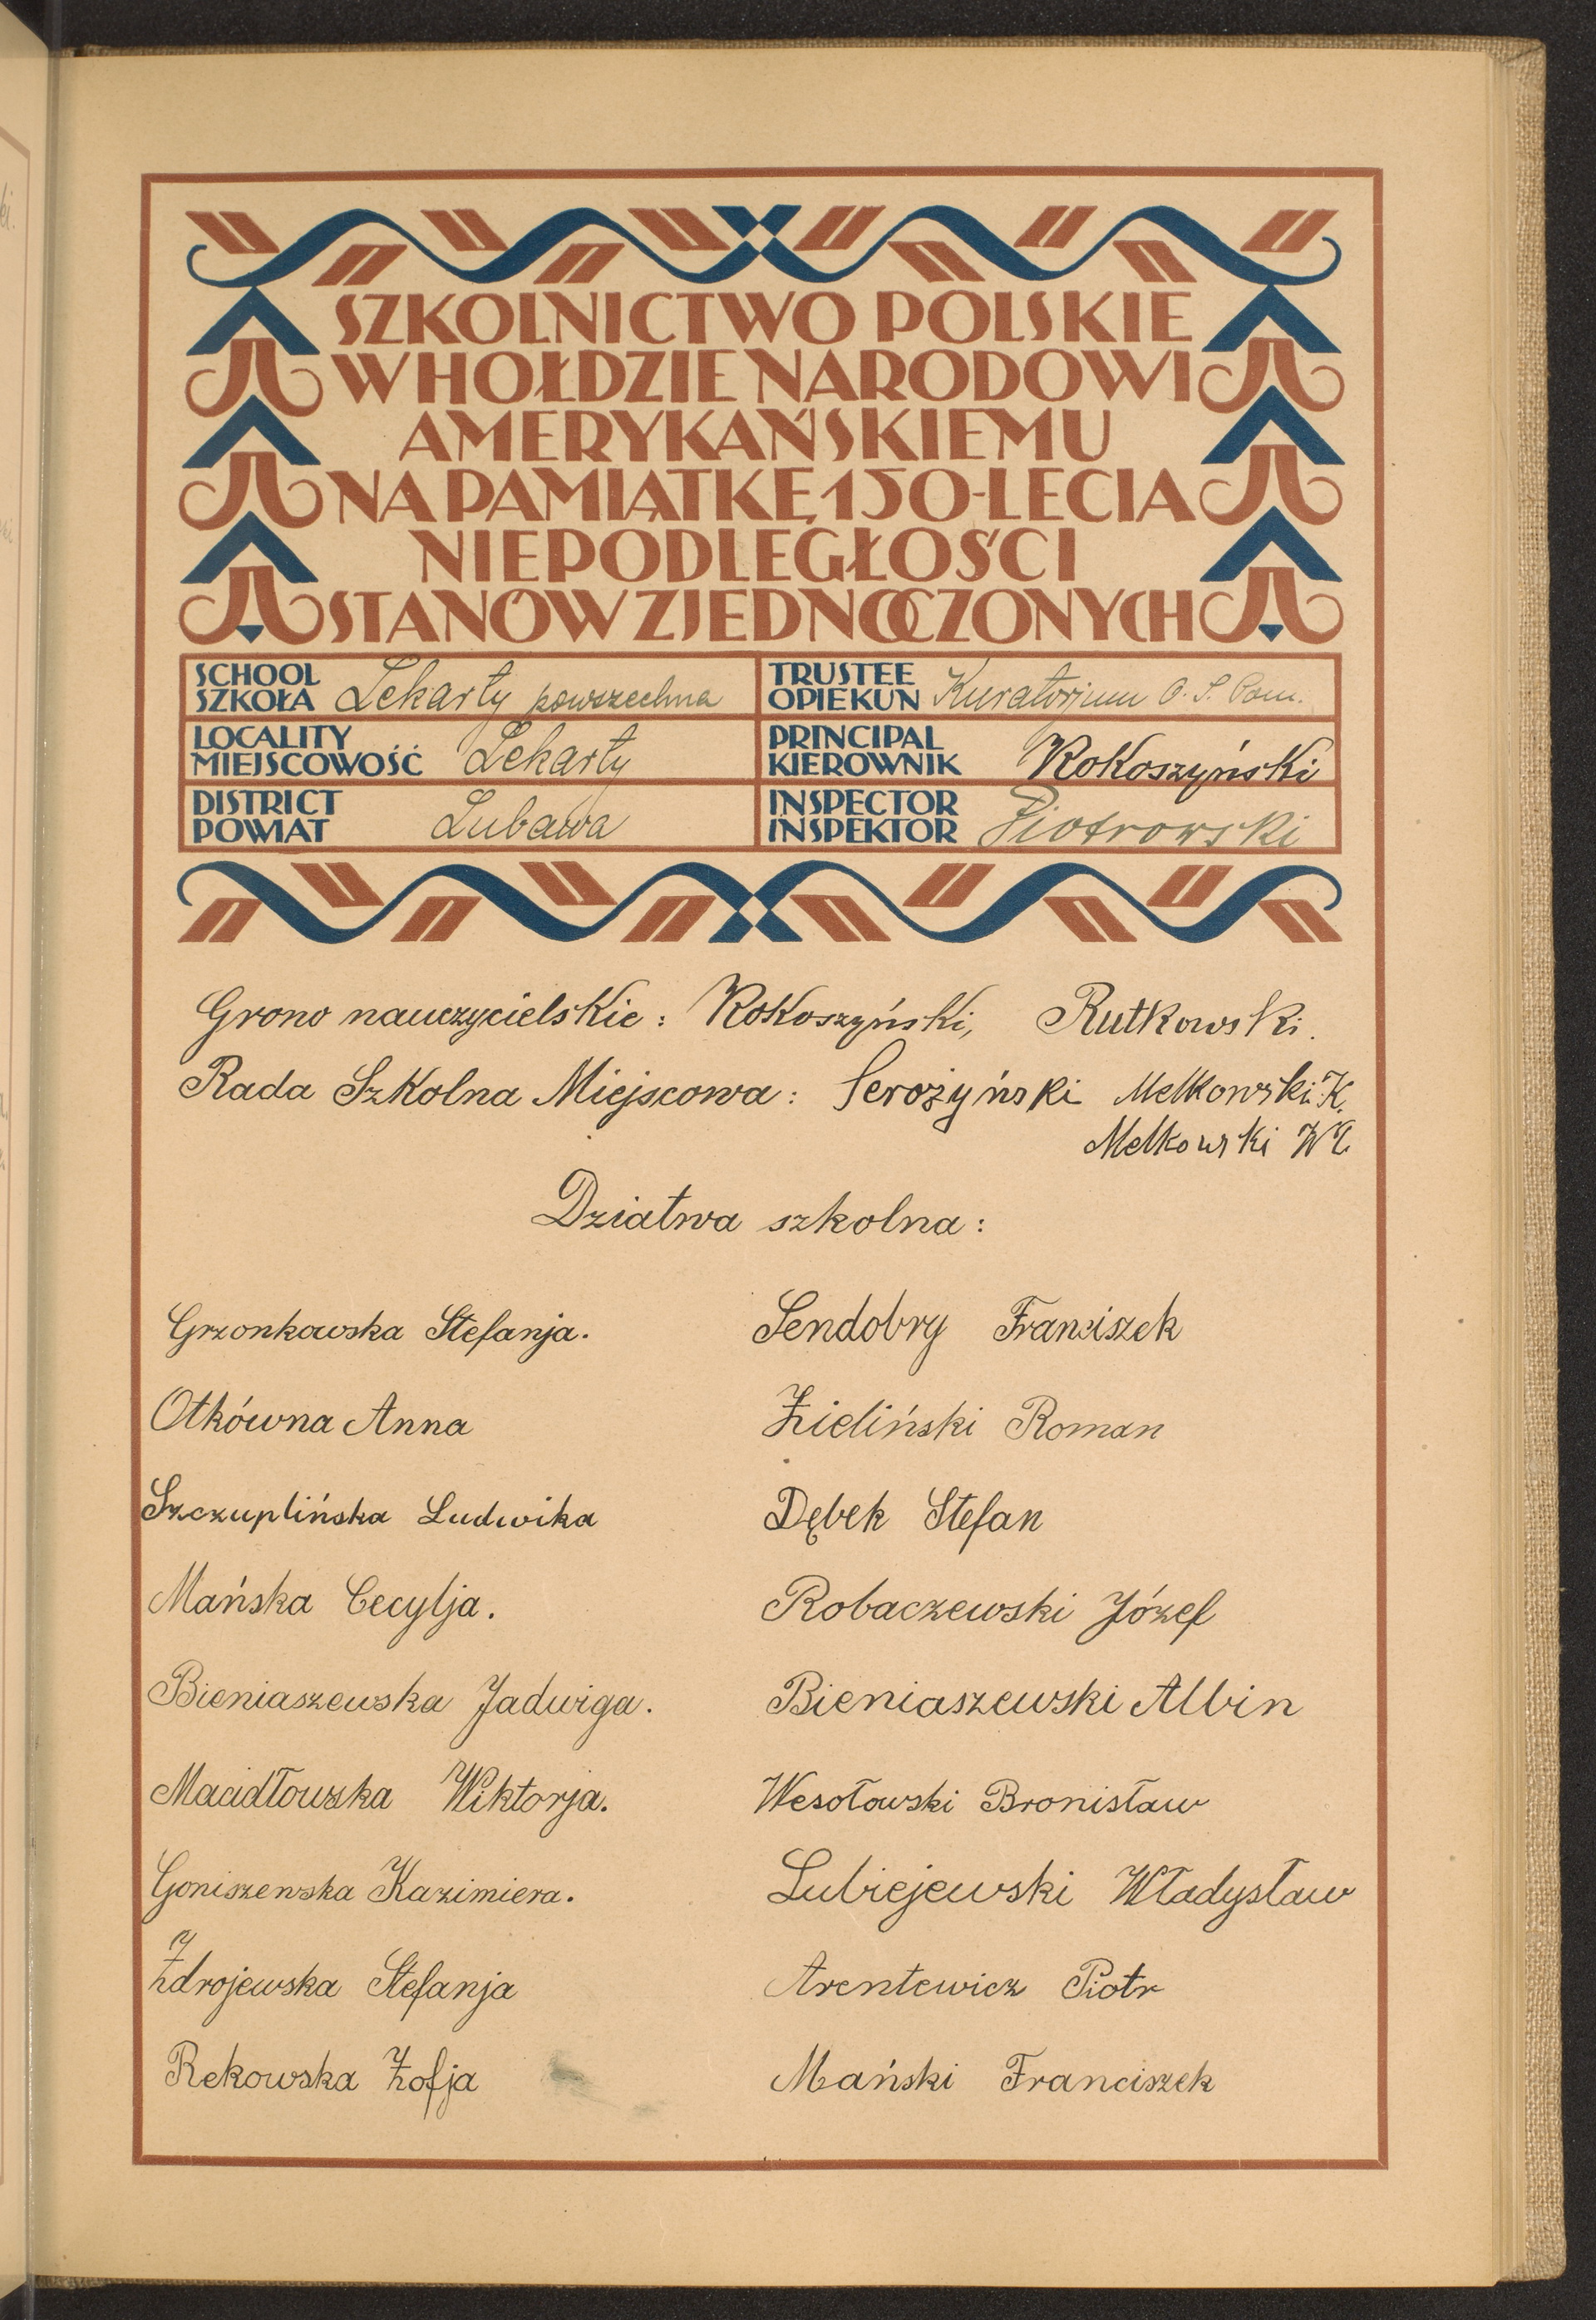 SZKOLNICTWO POLSKIE
W HOŁDZIE NARODOWI
AMERYKAŃSKIEMU
NA PAMIĄTKĘ 150-LECIA
NIEPODLEGŁOŚCI
STANÓW ZJEDNOCZONYCH
SCHOOL
SZKOŁA Lekarty powszechna
TRUSTEE
OPIEKUN Kuratorjum O. S. Pom.
LOCALITY
MIEJSCOWOŚĆ Lekarty
PRINCIPAL
KIEROWNIK Rokoszyński
DISTRICT
POWIAT Lubawa
INSPECTOR
INSPEKTOR Piotrowski
Grono nauczycielskie: Rokoszyński, Rutkowski.
Rada Szkolna Miejscowa: Serożyński Melkowski K.
Melkowski
Dziatwa szkolna:
Grzonkowska Stefanja.
Otkówna Anna
Szczuplińska Ludwika
Mańska Cecylja.
Bieniaszewska Jadwiga.
Macidłowska Wiktorja.
Goniszewska Kazimiera.
Zdrojewska Stefanja
Rekowska Zofja
Sendobry Franciszek
Zieliński Roman
Dębek Stefan
Robaczewski Józef
Bieniaszewski Albin
Wesołowski Bronisław
Lubiejewski Władysław
Arentewicz Piotr
Mański Franciszek